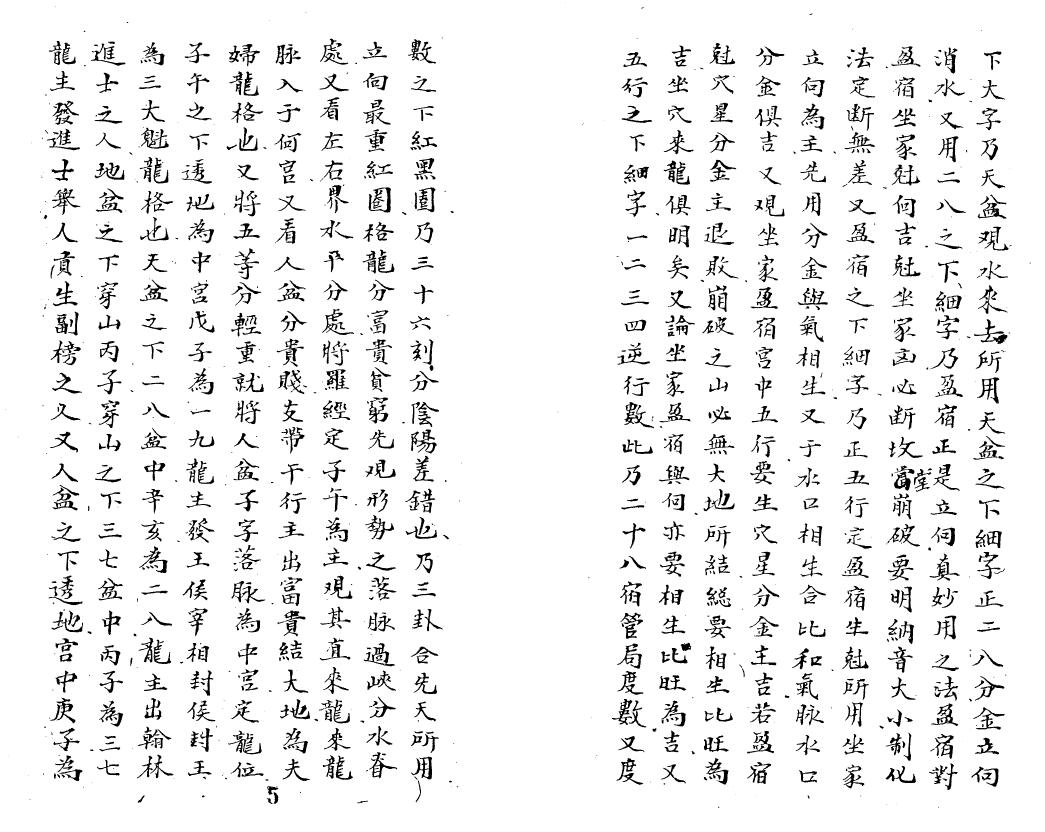 下大字乃天盆观水來去所用天盆之下細字正二八分金立向
消水又用二八之下細字乃盈宿正是立向真妙用之法盈宿對
盈宿坐家尅向吉尅坐家凶必断坟堂當崩破要明納音大小制化
法定断無差又盈宿之下細字乃正五行定盈宿生尅所用坐家
立向為主先用分金與氣相生又于水口相生合比和氣脉水口
分金俱吉又观坐家盈宿宫中五行要生穴星分金主吉若盈宿
尅穴星分金主退敗崩破之山必無大地所結総要相生比旺為
吉坐穴來龍俱明矣又論坐家盈宿與向亦要相生比旺為吉又
五行之下細字一二三四逆行數此乃二十八宿管局度數又度
數之下紅黑圈乃三十六刻分陰陽差錯也乃三卦合先天所用
立向最重紅圈格龍分富貴貧窮先观形勢之落脉過峽分水脊
處又看左右界水平分處將羅經定子午為主观其直來龍來龍
脉入于何宫又看人盆分貴賤支帶干行主出富貴結大地為夫
婦龍格也又將五等分輕重就將人盆子字落脉為中宫定龍位
子午之下透地為中宫戊子為一九龍主發王侯宰相封侯封王
為三大魁龍格也天盆之下二八盆中辛亥為二八龍主出翰林
進士之人地盆之下穿山丙子穿山之下三七盆中丙子為三七
龍主發進士舉人貢生副榜之久又人盆之下透地宫中庚子為
5